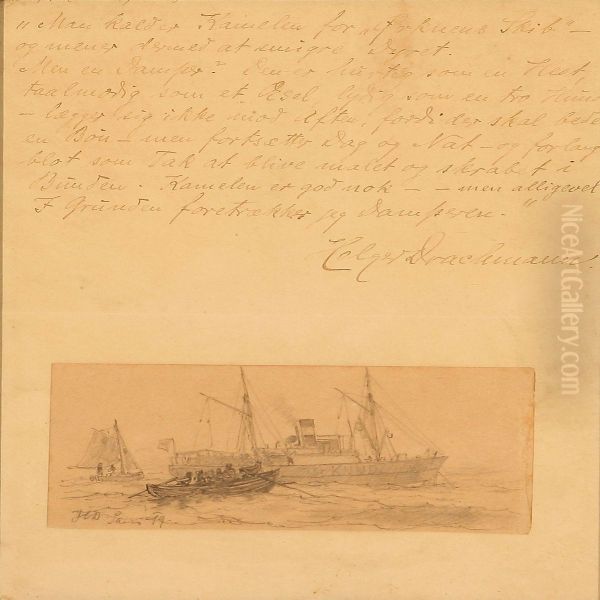 "Man kalder Kamelen for "Ørknens Skib" –
og mener dermed at smigre Dyret.
Men en Damper? Den er hurtig som en Hest,
taalmodig som et Esel, lydig som en tro Hund
– lægger sig ikke mod Aften, fordi der skal bedes
en Bøn – men fortsætter Dag og Nat – og forlang
blot som Tak at blive malet og skrabet i
Bunden. Kamelen er god nok – – men alligevel
I Grunden foretrækker jeg Damperen."
Holger Drachmann.
HD
19
NiceArtGallery.com